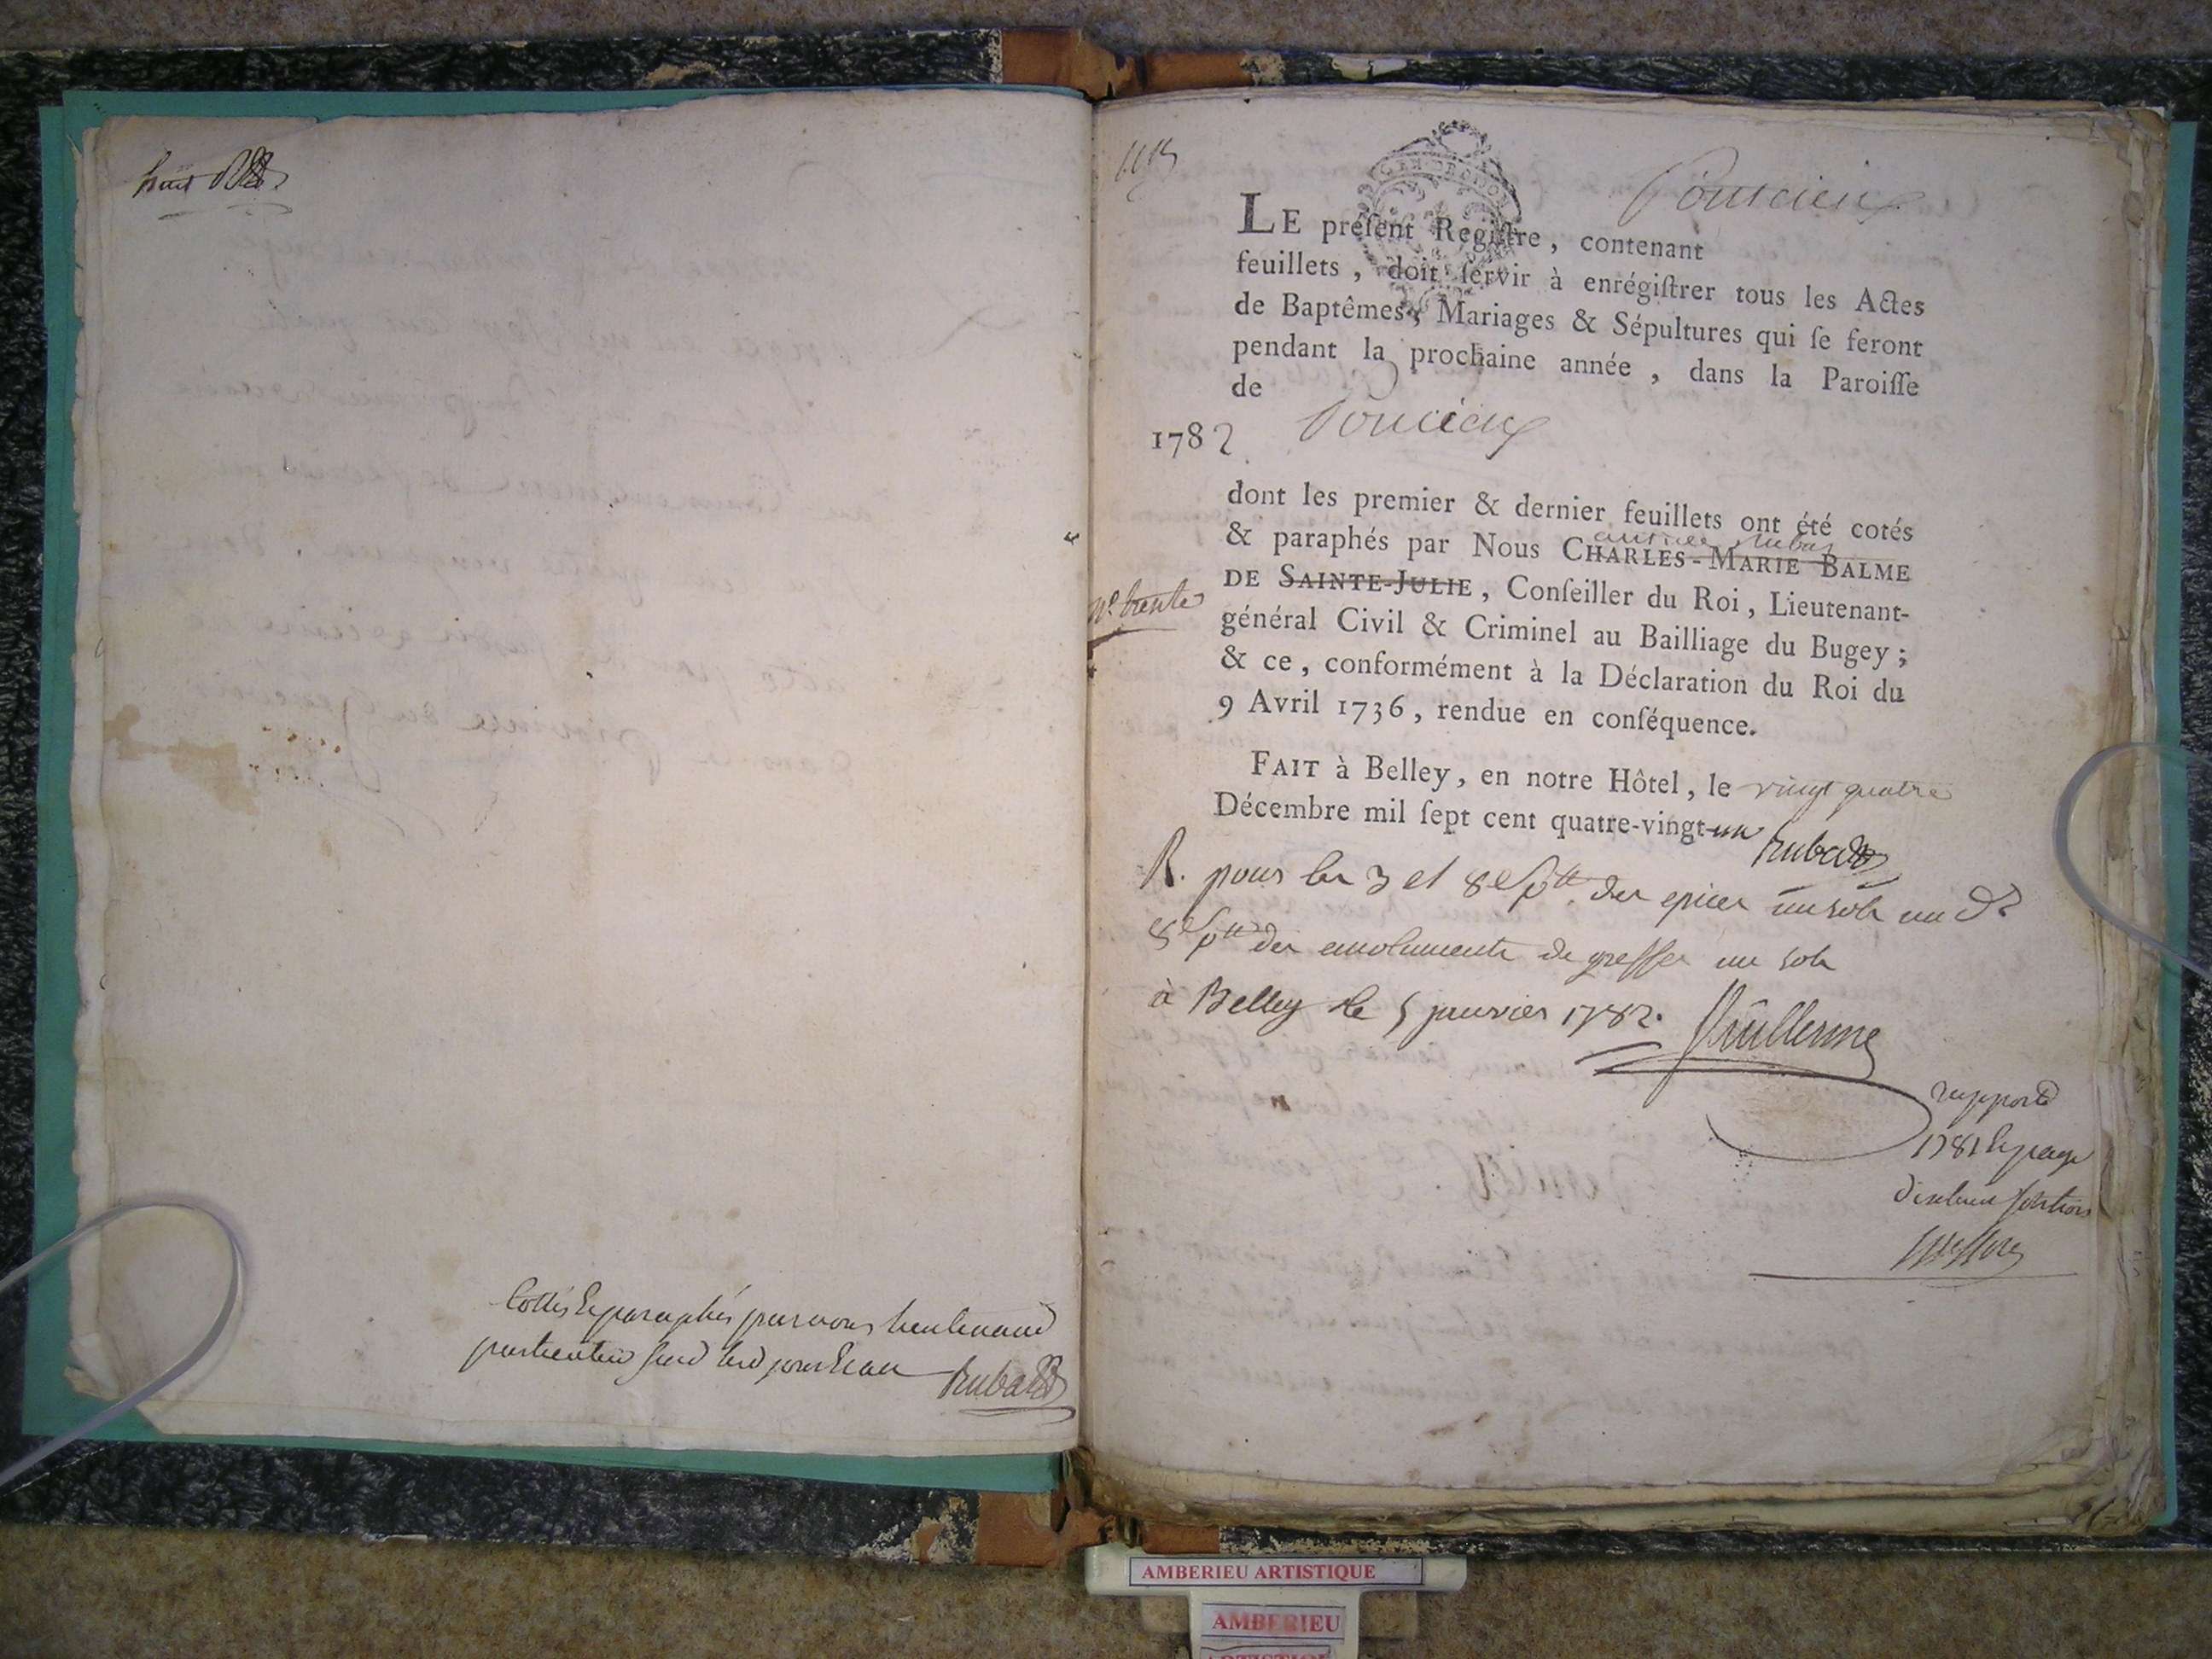 huit
Cottés & paraphés par nous lieutenand
particulier
Rubat
Poncieux
LE préſent Regiſtre, contenant
feuillets, doit ſervir à enrégiſtrer tous les Actes
de Baptêmes, Mariages & Sépultures qui ſe feront
pendant la prochaine année, dans la Paroiſſe
de
1782 Poncieux
dont les premier & dernier feuillets ont été cotés
& paraphés par Nous CHARLES-MARIE BALME
DE SAINTE-JULIE, Conſeiller du Roi, Lieutenant-
général Civil & Criminel au Bailliage du Bugey;
& ce, conformément à la Déclaration du Roi du
9 Avril 1736, rendue en conſéquence.
nº. trente
FAIT à Belley, en notre Hôtel, le vingt quatre
Décembre mil ſept cent quatre-vingt-un
Rubat
R. pour les 3 et 8 des epices un sols un
des emoluments de greffe un sols
à Belley le 5 janvier 1782.
Guillerme
rapporté
1781
AMBERIEU ARTISTIQUE
AMBERIEU
ARTISTIQUE